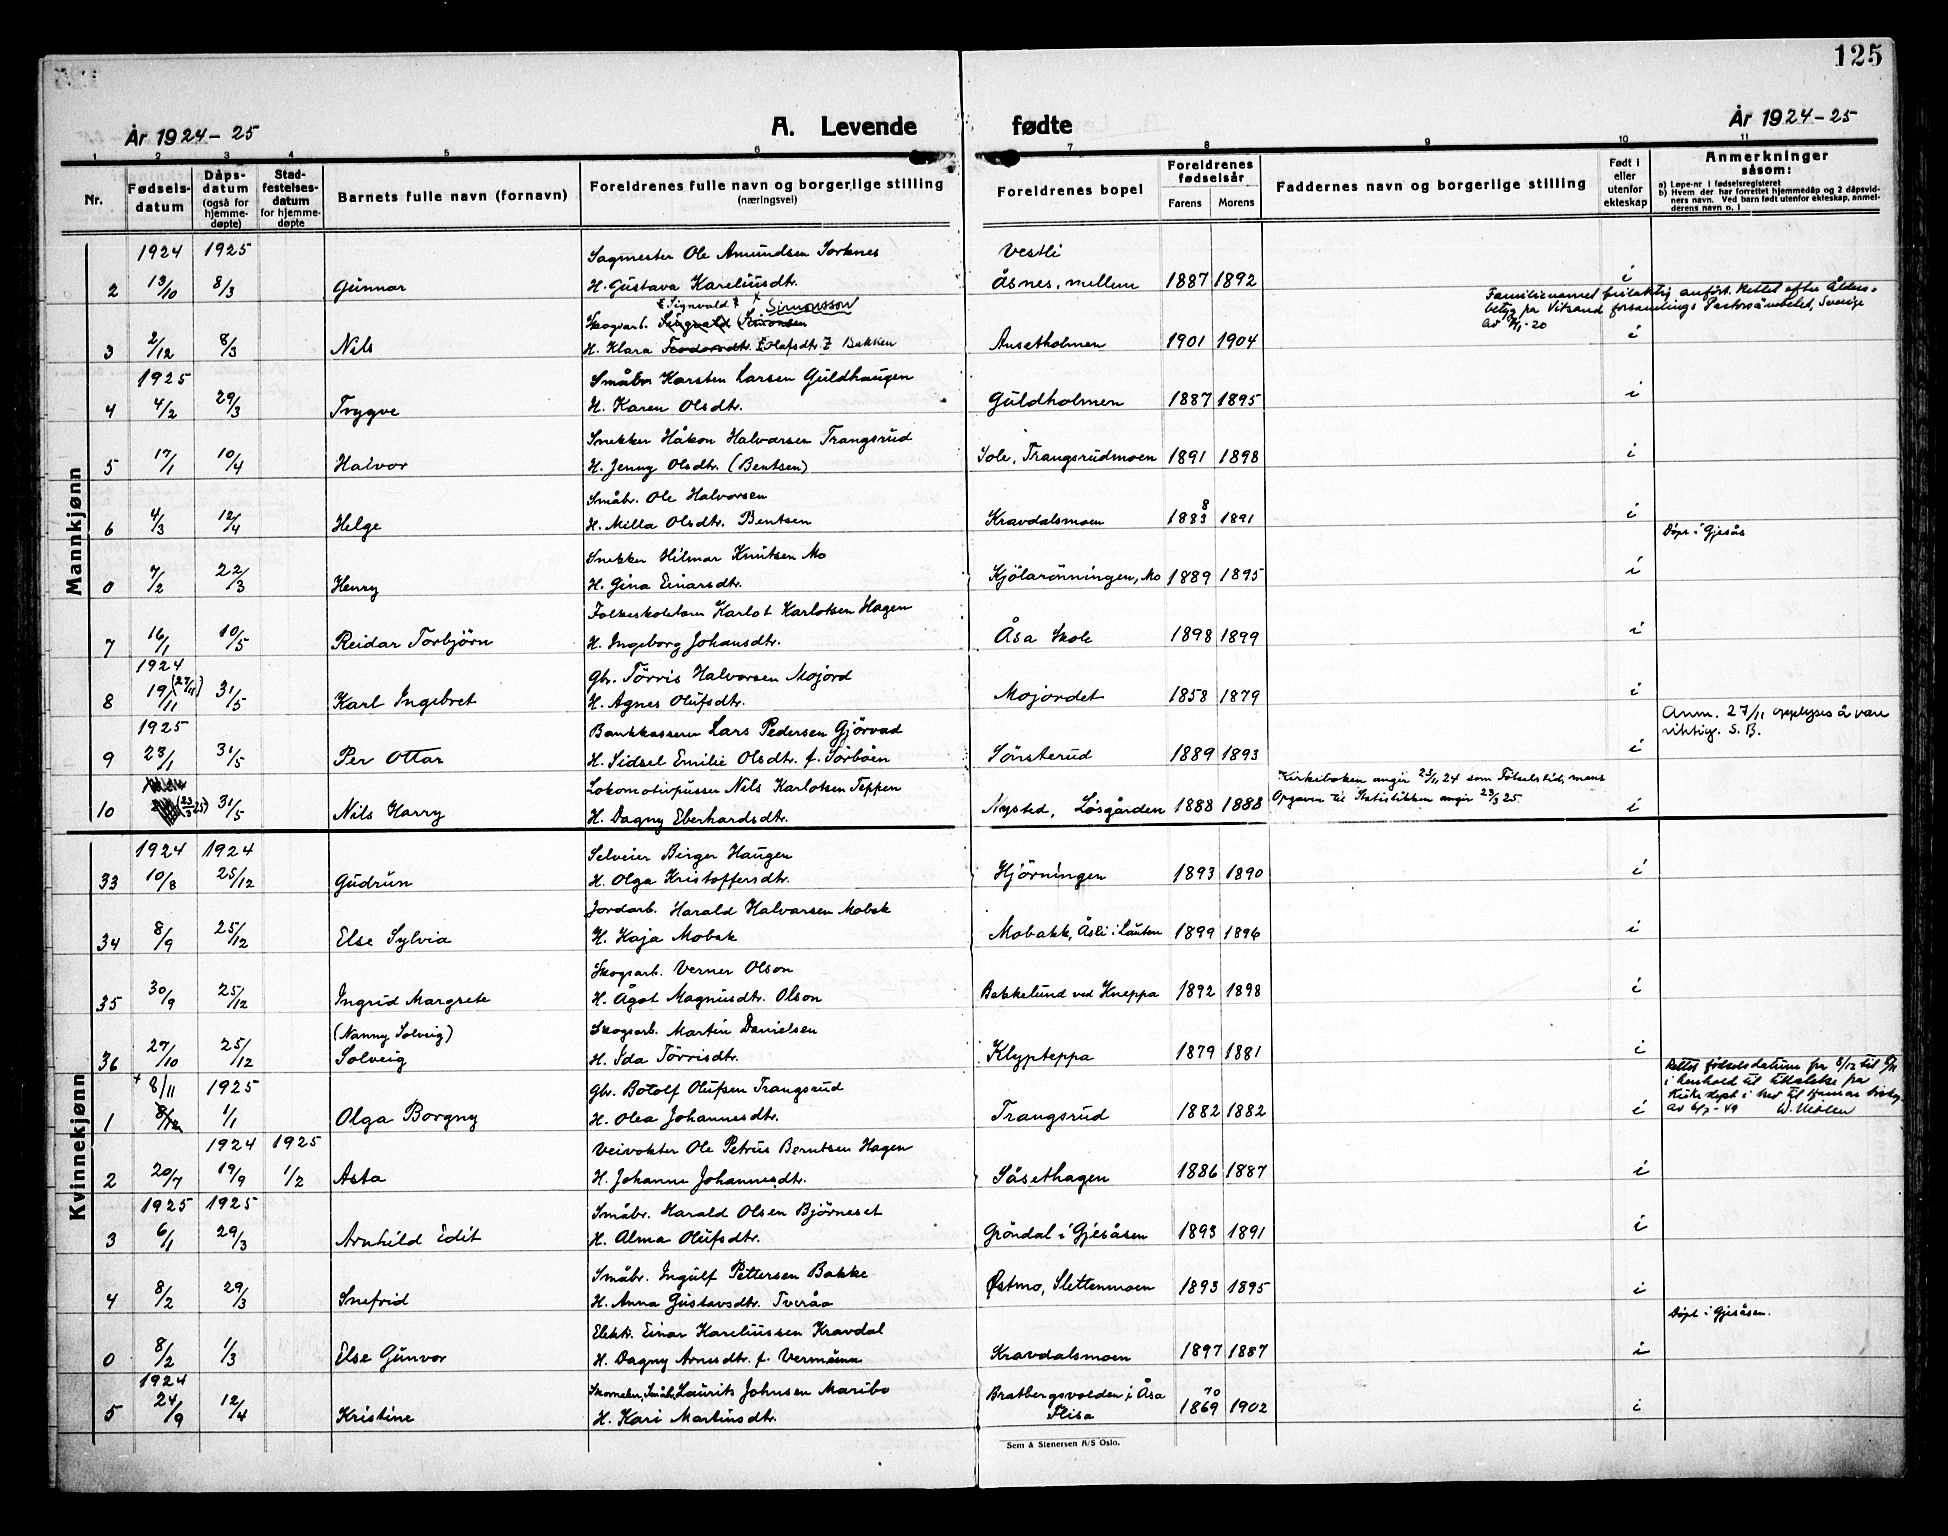 125
År 1924-25 A. Levende fødte År 1924-25
1 2 3 4 5 6 7 8 9 10 11
Nr. Fødselsdatum Dåpsdatum (også for hjemmedøpte) Stadfestelsesdatum for hjemmedøpte Barnets fulle navn (fornavn) Foreldrenes fulle navn og borgerlige stilling (næringsvei) Foreldrenes bopel Foreldrenes fødselsår Farens Morens Faddernes navn og borgerlige stilling Født i eller utenfor ekteskap Anmerkninger såsom:
a) Løpe-nr i fødselsregisteret
b) Hvem der har forrettet hjemmedåp og 2 dåpsvidners navn. Ved barn født utenfor ekteskap, anmelderens navn o. l
Mannkjønn
1924 1925 Sagmester Ole Amundsen Sorknes Vestli
2 13/10 8/3 Gunnar H. Gustava Kareliusdtr. Åsnes, mellem 1887 1892 i
Familienavnet feilaktig anført. Rettet efter Alders-
betyg fra Vitsand forsamlings Pastorsämbetet, Sverige
Sigvald Simonsson
Skogsarb. Sigvald Simonsen
3 2/12 8/3 Nils H. Klara Teodorsdtr. Olafsdtr. Bakken Ansetholmen 1901 1904 i
1925 Småbr Karsten Larsen Guldhaugen
4 4/2 29/3 Trygve H. Karen Olsdtr. Guldholmen 1887 1895 i
Snekker Håkon Halvorsen Trangsrud
5 17/1 10/4 Halvor H. Jenny Olsdtr. (Bentsen) Sole, Trangsrudmoen 1891 1898 i
Småbr. Ole Halvorsen
6 4/3 12/4 Helge H. Milla Olsdtr. Bentsen Kravdalsmoen 1883 8 1891 i
Døpt i Gjesås
Snekker Hilmar Knutsen Mo
0 7/2 22/3 Henry H. Gina Einarsdtr. Kjölarönningen, Mo 1889 1895 i
Folkeskolelærer Karlot Karlotsen Hagen
7 16/1 10/5 Reidar Torbjörn H. Ingeborg Johansdtr. Åsa Skole 1898 1899 i
1924 Gbr. Törris Halvorsen Mojord
8 19/11 (27/11) 31/5 Karl Ingebret H. Agnes Olufsdtr. Mojordet 1858 1879 i
Anm. 27/11 opplyses å være
riktig. S. B.
1925 Bankkasserer Lars Pedersen Gjörvad
9 23/1 31/5 Per Ottar H. Sidsel Emilie Olsdtr. f. Sörböen Sönsterud 1889 1893 i
Lokomotivpusser Nils Karlotsen Teppen Kirkeboken angir 23/1 24 som Fötselstid, mens
Opgaven til Statistikken angir 23/3 25.
10 (23/3 25) 31/5 Nils Harry H. Dagny Eberhardsdtr. Nysted, Løsgården 1888 1888 i
Kvinnekjønn
1924 1924 Selveier Birger Haugen
33 10/8 25/12 Gudrun H. Olga Kristoffersdtr. Hjörningen 1893 1890 i
Jordarb. Harald Halvorsen Mobak
34 8/9 25/12 Else Sylvia H. Kaja Mobak Mobakk, Åsli i Lauten 1899 1896 i
Skogsarb. Verner Olson
35 30/9 25/12 Ingrid Margrete H. Ågot Magnusdtr. Olson Bekkelund ved Kneppa 1892 1898 i
(Nanny Solveig) Skogsarb. Martin Danielsen
36 27/10 25/12 Solveig H. Ida Törrisdtr. Klypteppa 1879 1881 i
+ 8/11 1925 Gbr. Botolf Olufsen Trangsrud
1 8/12 1/1 Olga Borgny H. Olea Johannesdtr. Trangsrud 1882 1882 i
Rettet fødselsdatum fra 8/12 til 8/11
i henhold til
W. Nielsen
1924 1925 Veivokter Ole Petrus Berntsen Hagen
2 20/7 19/9 1/2 Asta H. Johanne Johannesdtr. Såsethagen 1886 1887 i
1925 1925 Småbr. Harald Olsen Björneset
3 6/1 29/3 Arnhild Edit H. Alma Olufsdtr. Gröndal i Gjesåsen 1893 1891 i
Småbr. Ingulf Pettersen Bakke
4 8/2 29/3 Snefrid H. Anna Gustavsdtr. Tveråa Østmo, Slettenmoen 1893 1895 i
Døpt i Gjesåsen.
Elekt. Einar Kareliussen Kravdal
0 8/2 1/3 Else Gunvor H. Dagny Arnesdtr. f. Kravdalsmoen 1897 1887 i
1924 Skomaker, Småbr. Laurits Johnsen Maribo Bratbergsvolden i Åsa
5 24/9 12/4 Kristine H. Kari Martinsdtr. Flisa 70 1869 1902 i
Sem & Stenersen A/S Oslo.